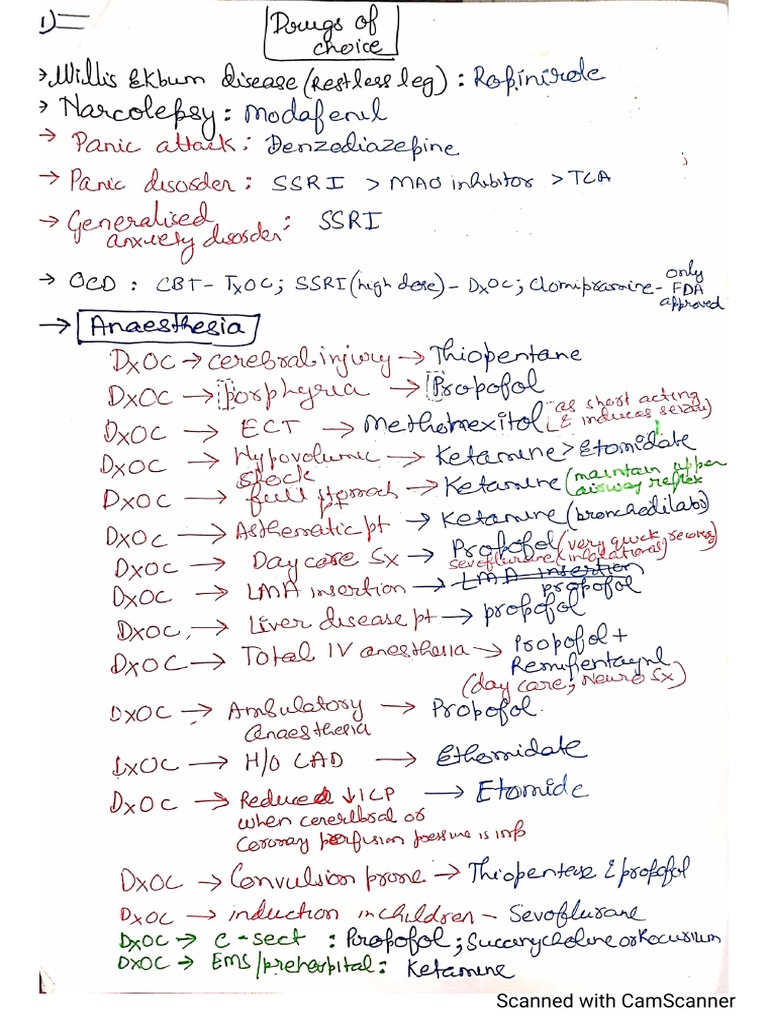 1)
Drugs of
choice
→ Willis Ekbum disease (Restless leg) : Ropinirole
→ Narcolepsy : Modafenil
→ Panic attack : Benzediazepine
→ Panic disorder : SSRI > MAO inhibitor > TCA
→ Generalised anxiety disorder : SSRI
→ OCD : CBT - TxOC ; SSRI (high dose) - DxOC ; Clomipramine - only FDA approved
→ Anaesthesia
DxOC → cerebral injury → Thiopentane
DxOC → porphyria → Propofol
DxOC → ECT → Methohexitol [as short acting & induces seizure)
DxOC → Hypovolumic shock → Ketamine > Etomidate
DxOC → full stomach → Ketamine (maintain upper airway reflex
DxOC → Asthematic pt → Ketamine (bronchodilabs)
DxOC → Day care Sx → Propofol (very quick recovery) sevoflurane (inhalational)
DxOC → LMA insertion → LMA insertion propofol
DxOC → Liver disease pt → propofol
DxOC → Total IV anesthesia → Propofol + Remifentaynl
(day care ; Neuro Sx)
DxOC → Ambulatory Anaesthesia → Propofol.
DxOC → H/O CAD → Ethomidate
DxOC → Reduced ↓ ICP → Etomide
when cererlbral or
coronary perfusion pressure is imp
DxOC → Convulsion prone → Thiopentase & propofol
DxOC → induction in children - Sevoflurane
DxOC → C-sect : Propofol ; Succinycholine or Rocurium
DxOC → EMS/prehospital : Ketamine
Scanned with CamScanner